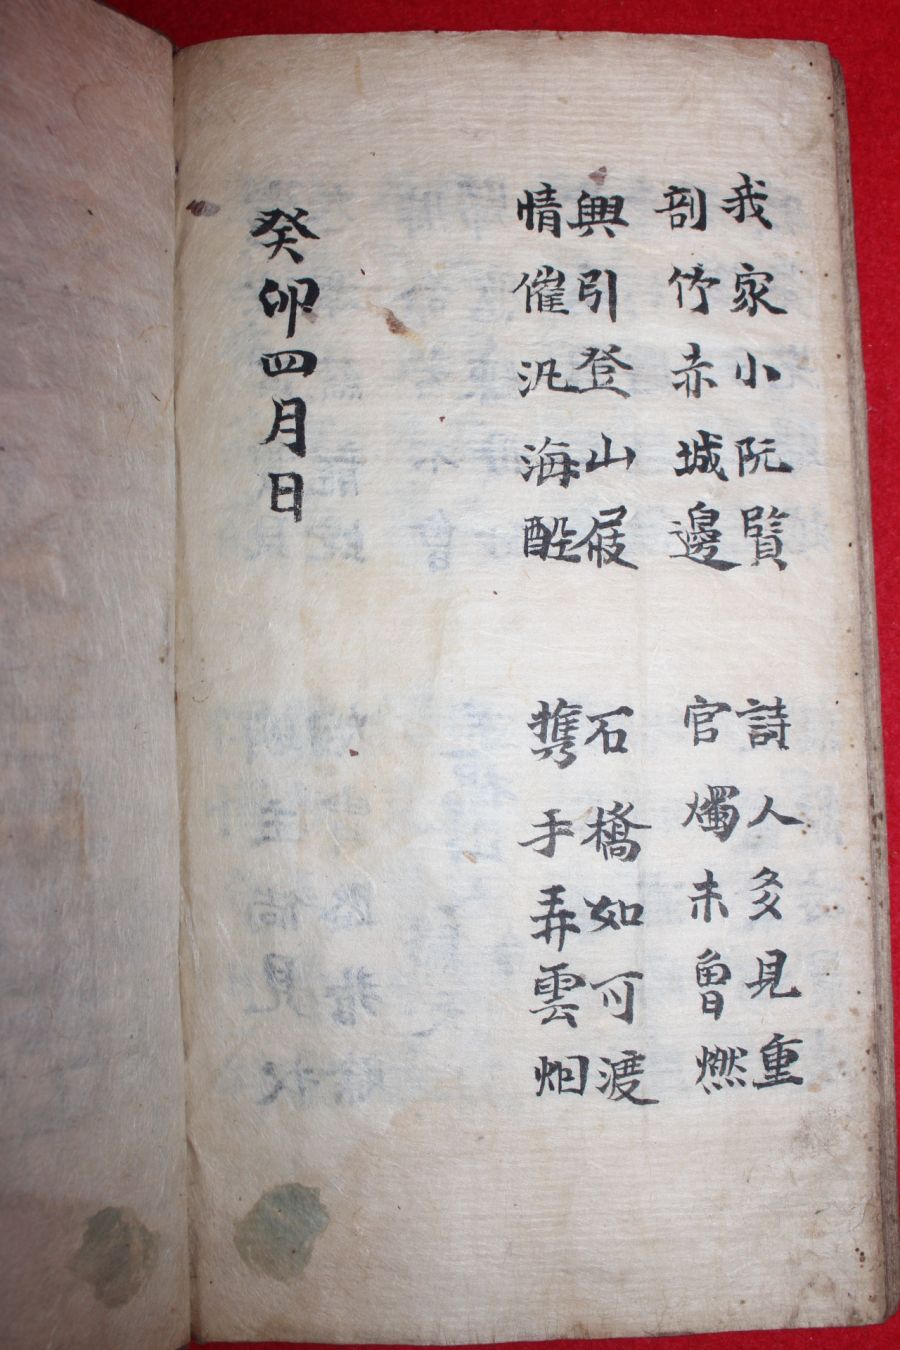 我家小阮賢 詩人多見重
剖竹赤城邊 官燭未曾燃
興引登山屐 石橋如可渡
情催汎海 携手弄雲烟
癸卯四月日